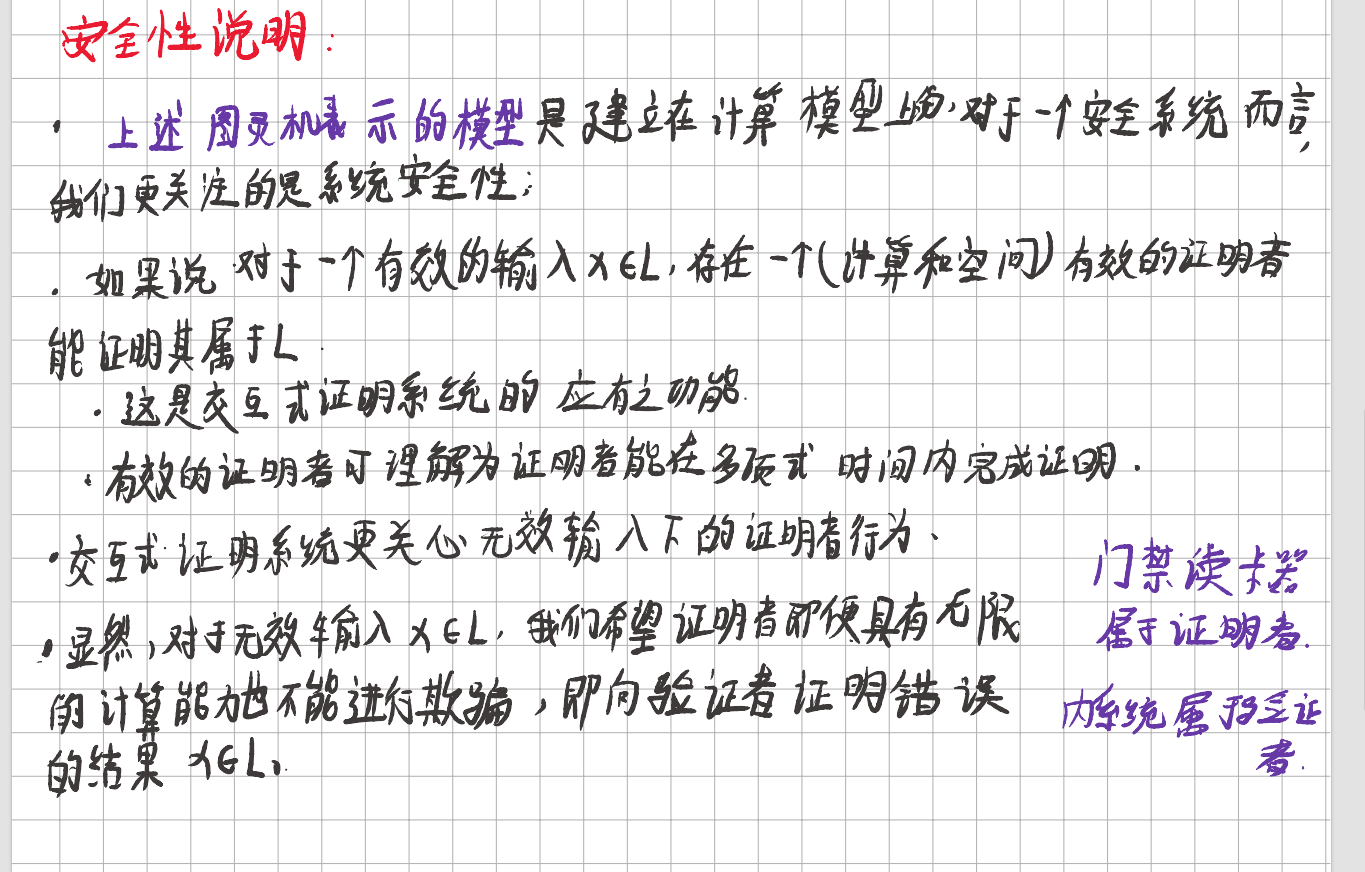 安全性说明:
· 上述图灵机表示的模型是建立在计算模型上的,对于一个安全系统而言,
我们更关注的是系统安全性;
· 如果说对于一个有效的输入x∈L,存在一个(计算和空间)有效的证明者
能证明其属于L.
· 这是交互式证明系统的应有之功能.
· 有效的证明者可理解为证明者能在多项式时间内完成证明.
· 交互式证明系统更关心无效输入下的证明者行为、
· 显然,对于无效输入x∈L,我们希望证明者即便具有无限
的计算能力也不能进行欺骗,即向验证者证明错误
的结果 x∈L。
门禁读卡器
属于证明者.
内系统属于验证
者.